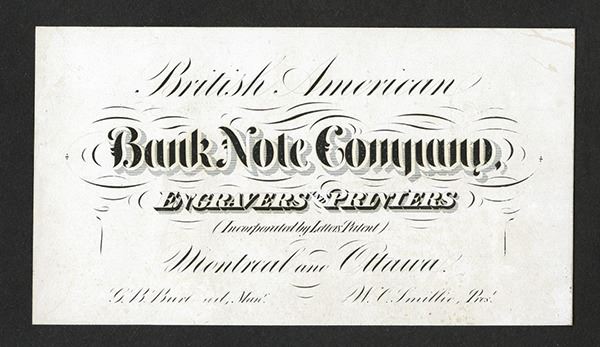 British American
Bank Note Company.
Engravers and Printers
(Incorporated by Letters Patent)
Montreal and Ottawa.
G. B. Man.r W. C. Smillie, Pres.t